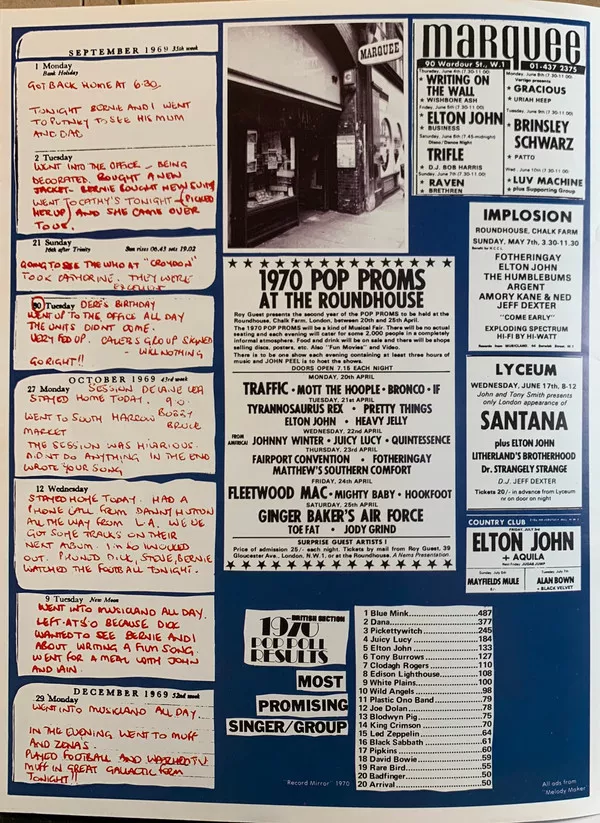 SEPTEMBER 1969 35th week
1 Monday
Bank Holiday
GOT BACK HOME AT 6-30.
TONIGHT BERNIE AND I WENT
TO PUTNEY TO SEE HIS MUM
AND DAD
2 Tuesday
WENT INTO THE OFFICE - BEING
DECORATED. BOUGHT A NEW
JACKET - BERNIE BOUGHT NEW SUIT
WENT TO CATHY'S TONIGHT - (PICKED
HER UP) AND SHE CAME OVER
TO US.
21 Sunday
16th after Trinity Sun rises 06.43 sets 19.02
GOING TO SEE THE WHO AT "CROYDON"
TOOK CATHERINE. THEY WERE
EXCELLENT
30 Tuesday DERES BIRTHDAY
WENT UP TO THE OFFICE ALL DAY
THE UNITS DIDNT COME.
VERY FED UP. GROUP SIGNED
- WILL NOTHING
GO RIGHT!!
OCTOBER 1969 43rd week
27 Monday SESSION DELANE LEA
STAYED HOME TODAY. 9.0.
WENT TO SOUTH HARROW BOBBY
MARKET BRUCE
THE SESSION WAS HILARIOUS.
DIDNT DO ANYTHING IN THE END
WROTE 'YOUR SONG
12 Wednesday
STAYED HOME TODAY. HAD A
PHONE CALL FROM DANNY HUTTON
ALL THE WAY FROM L.A. WE'VE
GOT SOME TRACKS ON THEIR
NEXT ALBUM. I'M SO KNOCKED
OUT. PHONED DICK, STEVE, BERNIE
WATCHED THE FOOTBALL TONIGHT.
9 Tuesday New Moon
WENT INTO MUSICLAND ALL DAY.
LEFT AT 5'0 BECAUSE DICK
WANTED TO SEE BERNIE AND I
ABOUT WRITING A FILM SONG.
WENT FOR A MEAL WITH JOHN
AND IAIN.
DECEMBER 1969 52nd week
29 Monday
WENT INTO MUSICLAND ALL DAY.
IN THE EVENING WENT TO MUFF
AND ZENA'S.
PLAYED FOOTBALL AND WATCHED T.V.
MUFF IN GREAT GALACTIC FORM
TONIGHT!!
MARQUEE
1970 POP PROMS
AT THE ROUNDHOUSE
Roy Guest presents the second year of the POP PROMS to be held at the
Roundhouse, Chalk Farm. London, between 20th and 25th April.
The 1970 POP PROMS will be a kind of Musical Fair. There will be no actual
seating and each evening will cater for some 2,000 people in a completely
informal atmosphere. Food and drink will be on sale and there will be shops
selling discs, posters, etc. Also "Fun Movies" and Video.
There is to be one show each evening containing at least three hours of
music and JOHN PEEL is to host the shows.
DOORS OPEN 7.15 EACH NIGHT
MONDAY, 20th APRIL
TRAFFIC • MOTT THE HOOPLE • BRONCO • IF
TUESDAY, 21st APRIL
TYRANNOSAURUS REX • PRETTY THINGS
ELTON JOHN • HEAVY JELLY
WEDNESDAY, 22nd APRIL
FROM AMERICA! JOHNNY WINTER • JUICY LUCY • QUINTESSENCE
THURSDAY, 23rd APRIL
FAIRPORT CONVENTION • FOTHERINGAY
MATTHEW'S SOUTHERN COMFORT
FRIDAY, 24th APRIL
FLEETWOOD MAC • MIGHTY BABY • HOOKFOOT
SATURDAY, 25th APRIL
GINGER BAKER'S AIR FORCE
TOE FAT • JODY GRIND
SURPRISE GUEST ARTISTS !
Price of admission 25/- each night. Tickets by mail from Roy Guest, 39
Gloucester Ave., London. N.W.1, or at the Roundhouse. A Nems Presentation.
marquee
90 Wardour St., W.1 01-437 2375
Thursday, June 4th (7.30-11.00)
★ WRITING ON
THE WALL
★ WISHBONE ASH
Friday, June 5th (7.30-11.00)
★ ELTON JOHN
★ BUSINESS
Saturday, June 6th (7.45-midnight)
Disco/Dance Night
TRIFLE
★ D.J. BOB HARRIS
Sunday, June 7th (7.30-11.00)
★ RAVEN
★ BRETHREN
Monday, June 8th (7.30-11.00)
Vertigo presents
★ GRACIOUS
★ URIAH HEEP
Tuesday, June 9th (7.30-11.00)
★ BRINSLEY
SCHWARZ
★ PATTO
Wed., June 10th (7.30-11.00)
★ LUV MACHINE
★ plus Supporting Group
IMPLOSION
ROUNDHOUSE, CHALK FARM
SUNDAY, MAY 7th, 3.30-11.30
Benefit for N.C.C.L.
FOTHERINGAY
ELTON JOHN
THE HUMBLEBUMS
ARGENT
AMORY KANE & NED
JEFF DEXTER
"COME EARLY"
EXPLODING SPECTRUM
HI-FI BY HI-WATT
LYCEUM
WEDNESDAY, JUNE 17th, 8-12
John and Tony Smith presents
only London appearance of
SANTANA
plus ELTON JOHN
LITHERLAND'S BROTHERHOOD
Dr. STRANGELY STRANGE
D.J. JEFF DEXTER
Tickets 20/- in advance from Lyceum
nr on door on night
COUNTRY CLUB
FRIDAY, JULY 3rd
ELTON JOHN
+ AQUILA
Sunday, July 5th
MAYFIELDS MULE
Tuesday, July 7th
ALAN BOWN
+ BLACK VELVET
BRITISH SECTION
1970
POP POLL
RESULTS
MOST
PROMISING
SINGER/GROUP
1 Blue Mink 487
2 Dana 377
3 Pickettywitch 245
4 Juicy Lucy 184
5 Elton John 133
6 Tony Burrows 127
7 Clodagh Rogers 110
8 Edison Lighthouse 108
9 White Plains 100
10 Wild Angels 98
11 Plastic Ono Band 79
12 Joe Dolan 78
13 Blodwyn Pig 75
14 King Crimson 70
15 Led Zeppelin 64
16 Black Sabbath 61
17 Pipkins 60
18 David Bowie 59
19 Rare Bird 55
20 Badfinger 50
20 Arrival 50
"Record Mirror" 1970
All ads from
"Melody Maker